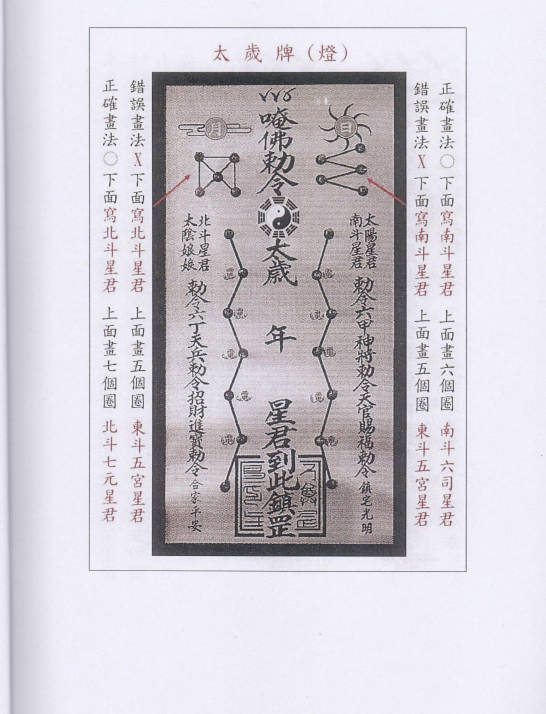 太歲牌(燈)
正確畫法○下面寫南斗星君 上面畫六個圈 南斗六司星君
錯誤畫法X下面寫南斗星君 上面畫五個圈 東斗五宮星君
日
太陽星君
南斗星君
勅令六甲神將勅令天官賜福勅令 鎮宅光明
唵佛勅令
太歲 年 星君到此鎮罡
月
北斗星君
太陰娘娘
勅令六丁天兵勅令招財進寶勅令 合家平安
錯誤畫法X下面寫北斗星君 上面畫五個圈 東斗五宮星君
正確畫法○下面寫北斗星君 上面畫七個圈 北斗七元星君